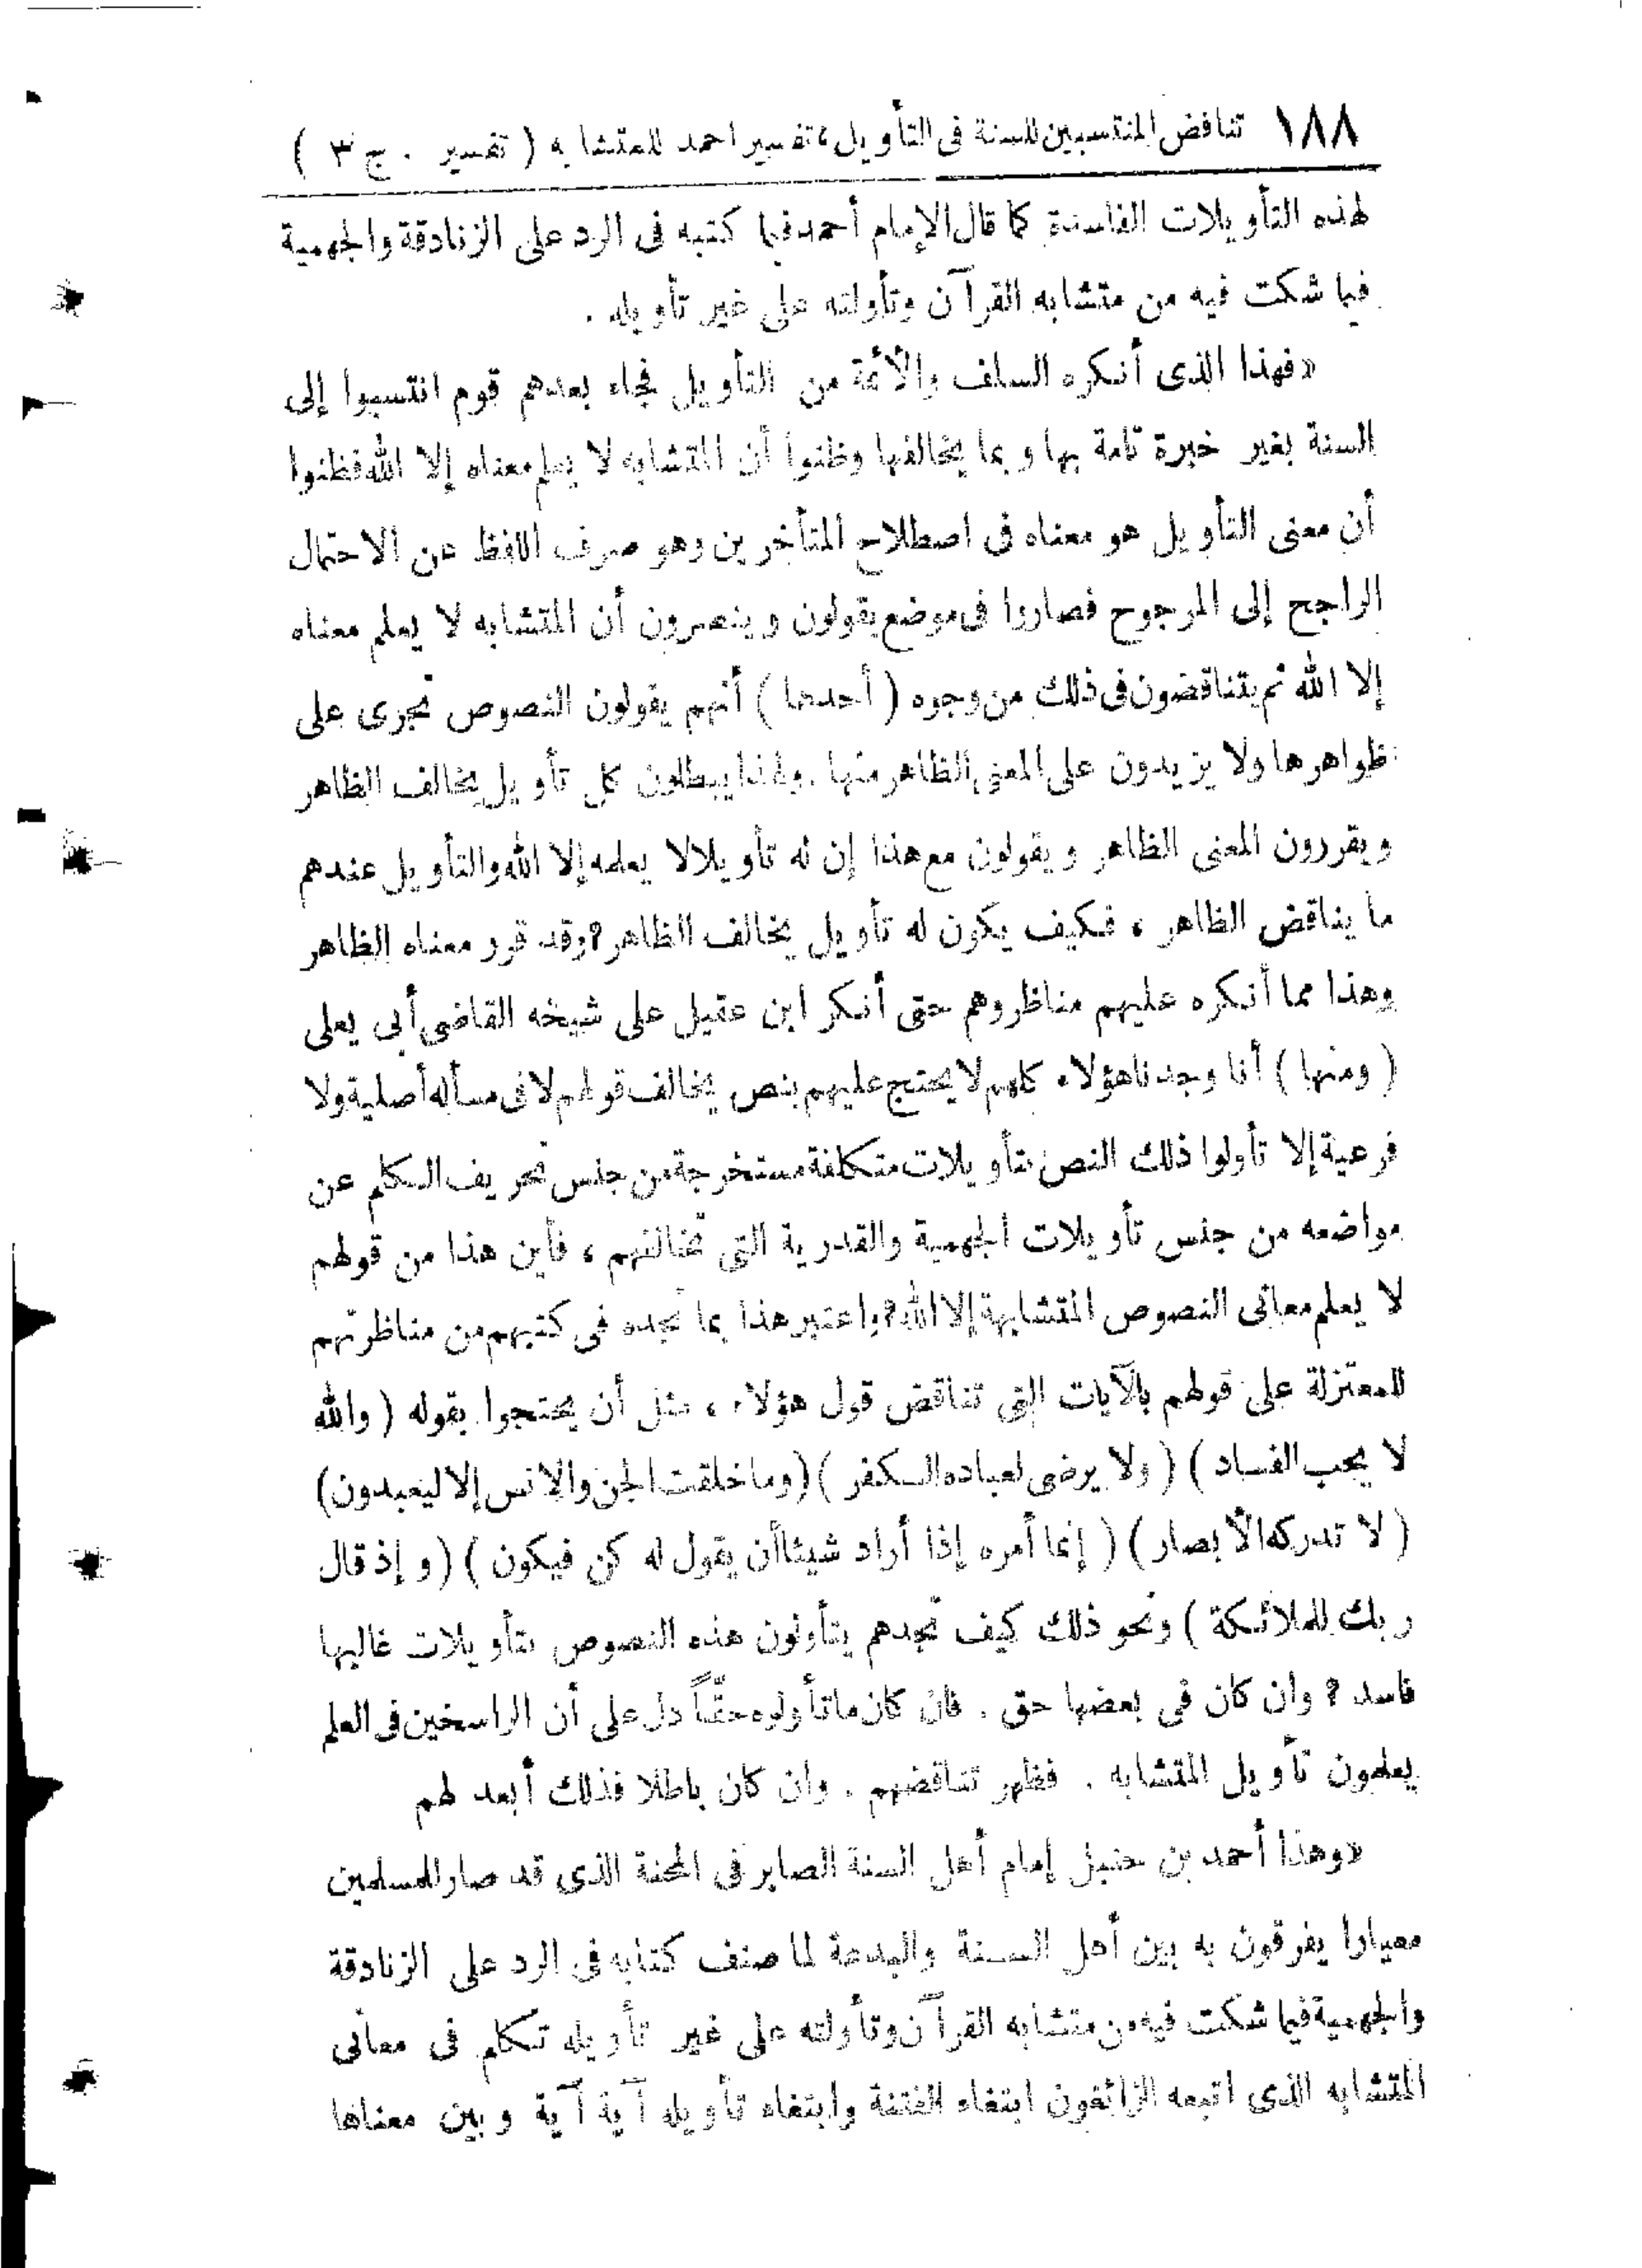 ١٨٨ تناقض المنتسبين للسنة فى التأويل، تفسير احمد للمتشابه ( تفسير . ج ٣ )
لهذه التأويلات الفاسدة كما قال الإمام أحمد فيما كتبه فى الرد على الزنادقة والجهمية
فيما شكت فيه من متشابه القرآن وتأولته على غير تأويله .
«فهذا الذى أنكره السلف والأئمة من التأويل فجاء بعدهم قوم انتسبوا إلى
السنة بغير خبرة تامة بها وبما يخالفها وظنوا أن المتشابه لا يعلم معناه إلا الله فظنوا
أن معنى التأويل هو معناه فى اصطلاح المتأخرين وهو صرف اللفظ عن الاحتمال
الراجح إلى المرجوح فصاروا فى موضع يقولون وينصرون أن المتشابه لا يعلم معناه
إلا الله ثم يتناقضون فى ذلك من وجوه ( أحدها ) أنهم يقولون النصوص تجرى على
ظواهرها ولا يزيدون على المعنى الظاهر منها . ولهذا يبطلون كل تأويل يخالف الظاهر
ويقررون المعنى الظاهر ويقولون مع هذا إن له تأويلا لا يعلمه إلا الله والتأويل عندهم
ما يناقض الظاهر ، فكيف يكون له تأويل يخالف الظاهر؟ وقد قرر معناه الظاهر
وهذا مما أنكره عليهم مناظروهم حتى أنكر ابن عقيل على شيخه القاضى أبى يعلى
( ومنها ) أنا وجدنا هؤلاء كلهم لا يحتج عليهم بنص يخالف قولهم لا فى مسألة أصلية ولا
فرعية إلا تأولوا ذلك النص بتأويلات متكلفة مستخرجة من جنس تحريف الكلم عن
مواضعه من جنس تأويلات الجهمية والقدرية التى تخالفهم ، فأين هذا من قولهم
لا يعلم معانى النصوص المتشابهة إلا الله؟ واعتبر هذا بما تجده فى كتبهم من مناظرتهم
للمعتزلة على قولهم بالآيات التى تناقض قول هؤلاء ، مثل أن يحتجوا بقوله ( والله
لا يحب الفساد ) ( ولا يرضى لعباده الكفر ) ( وما خلقت الجن والانس إلا ليعبدون)
( لا تدركه الأبصار ) ( إنما أمره إذا أراد شيئا أن يقول له كن فيكون ) ( وإذ قال
ربك للملائكة ) ونحو ذلك كيف تجدهم يتأولون هذه النصوص بتأويلات غالبها
فاسد ؟ وان كان فى بعضها حق . فان كان ما تأولوه حقّاً دل على أن الراسخين فى العلم
يعلمون تأويل المتشابه . فظهر تناقضهم . وان كان باطلا فذلك أبعد لهم
«وهذا أحمد بن حنبل إمام أهل السنة الصابر فى المحنة الذى قد صار للمسلمين
معيارا يفرقون به بين أهل السنة والبدعة لما صنف كتابه فى الرد على الزنادقة
والجهمية فيما شكت فيه من متشابه القرآن وتأولته على غير تأويله تكلم فى معانى
المتشابه الذى اتبعه الزائغون ابتغاء الفتنة وابتغاء تأويله آية آية وبين معناها